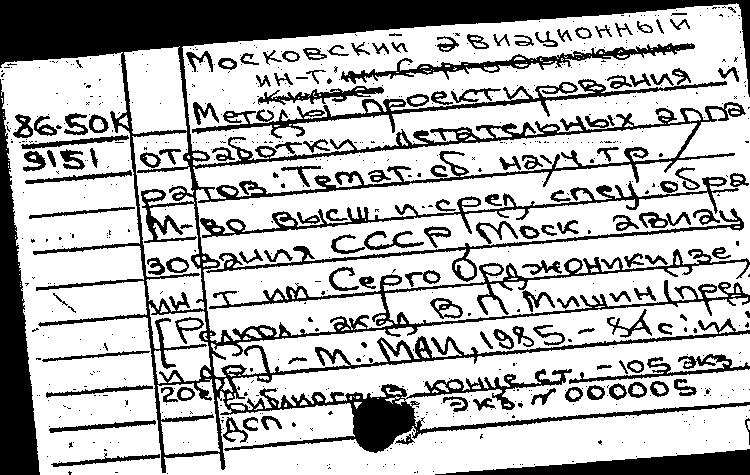 Московский авиационный
ин-т.
86-50К Методы проектирования и
9151 отработки летательных аппа
ратов: Темат. сб. науч. тр. /
М-во высш. и сред. спец. обра
зования СССР, Моск. авиац
ин-т им. Серго Орджоникидзе;
[Редкол.: акад. В.П. Мишин (пред)
и др.]. - М.: МАИ, 1985. - 84 с.: ил.;
20 см.
Библиогр. в конце ст. - 105 экз.
ДСП. Экз. N 000005.